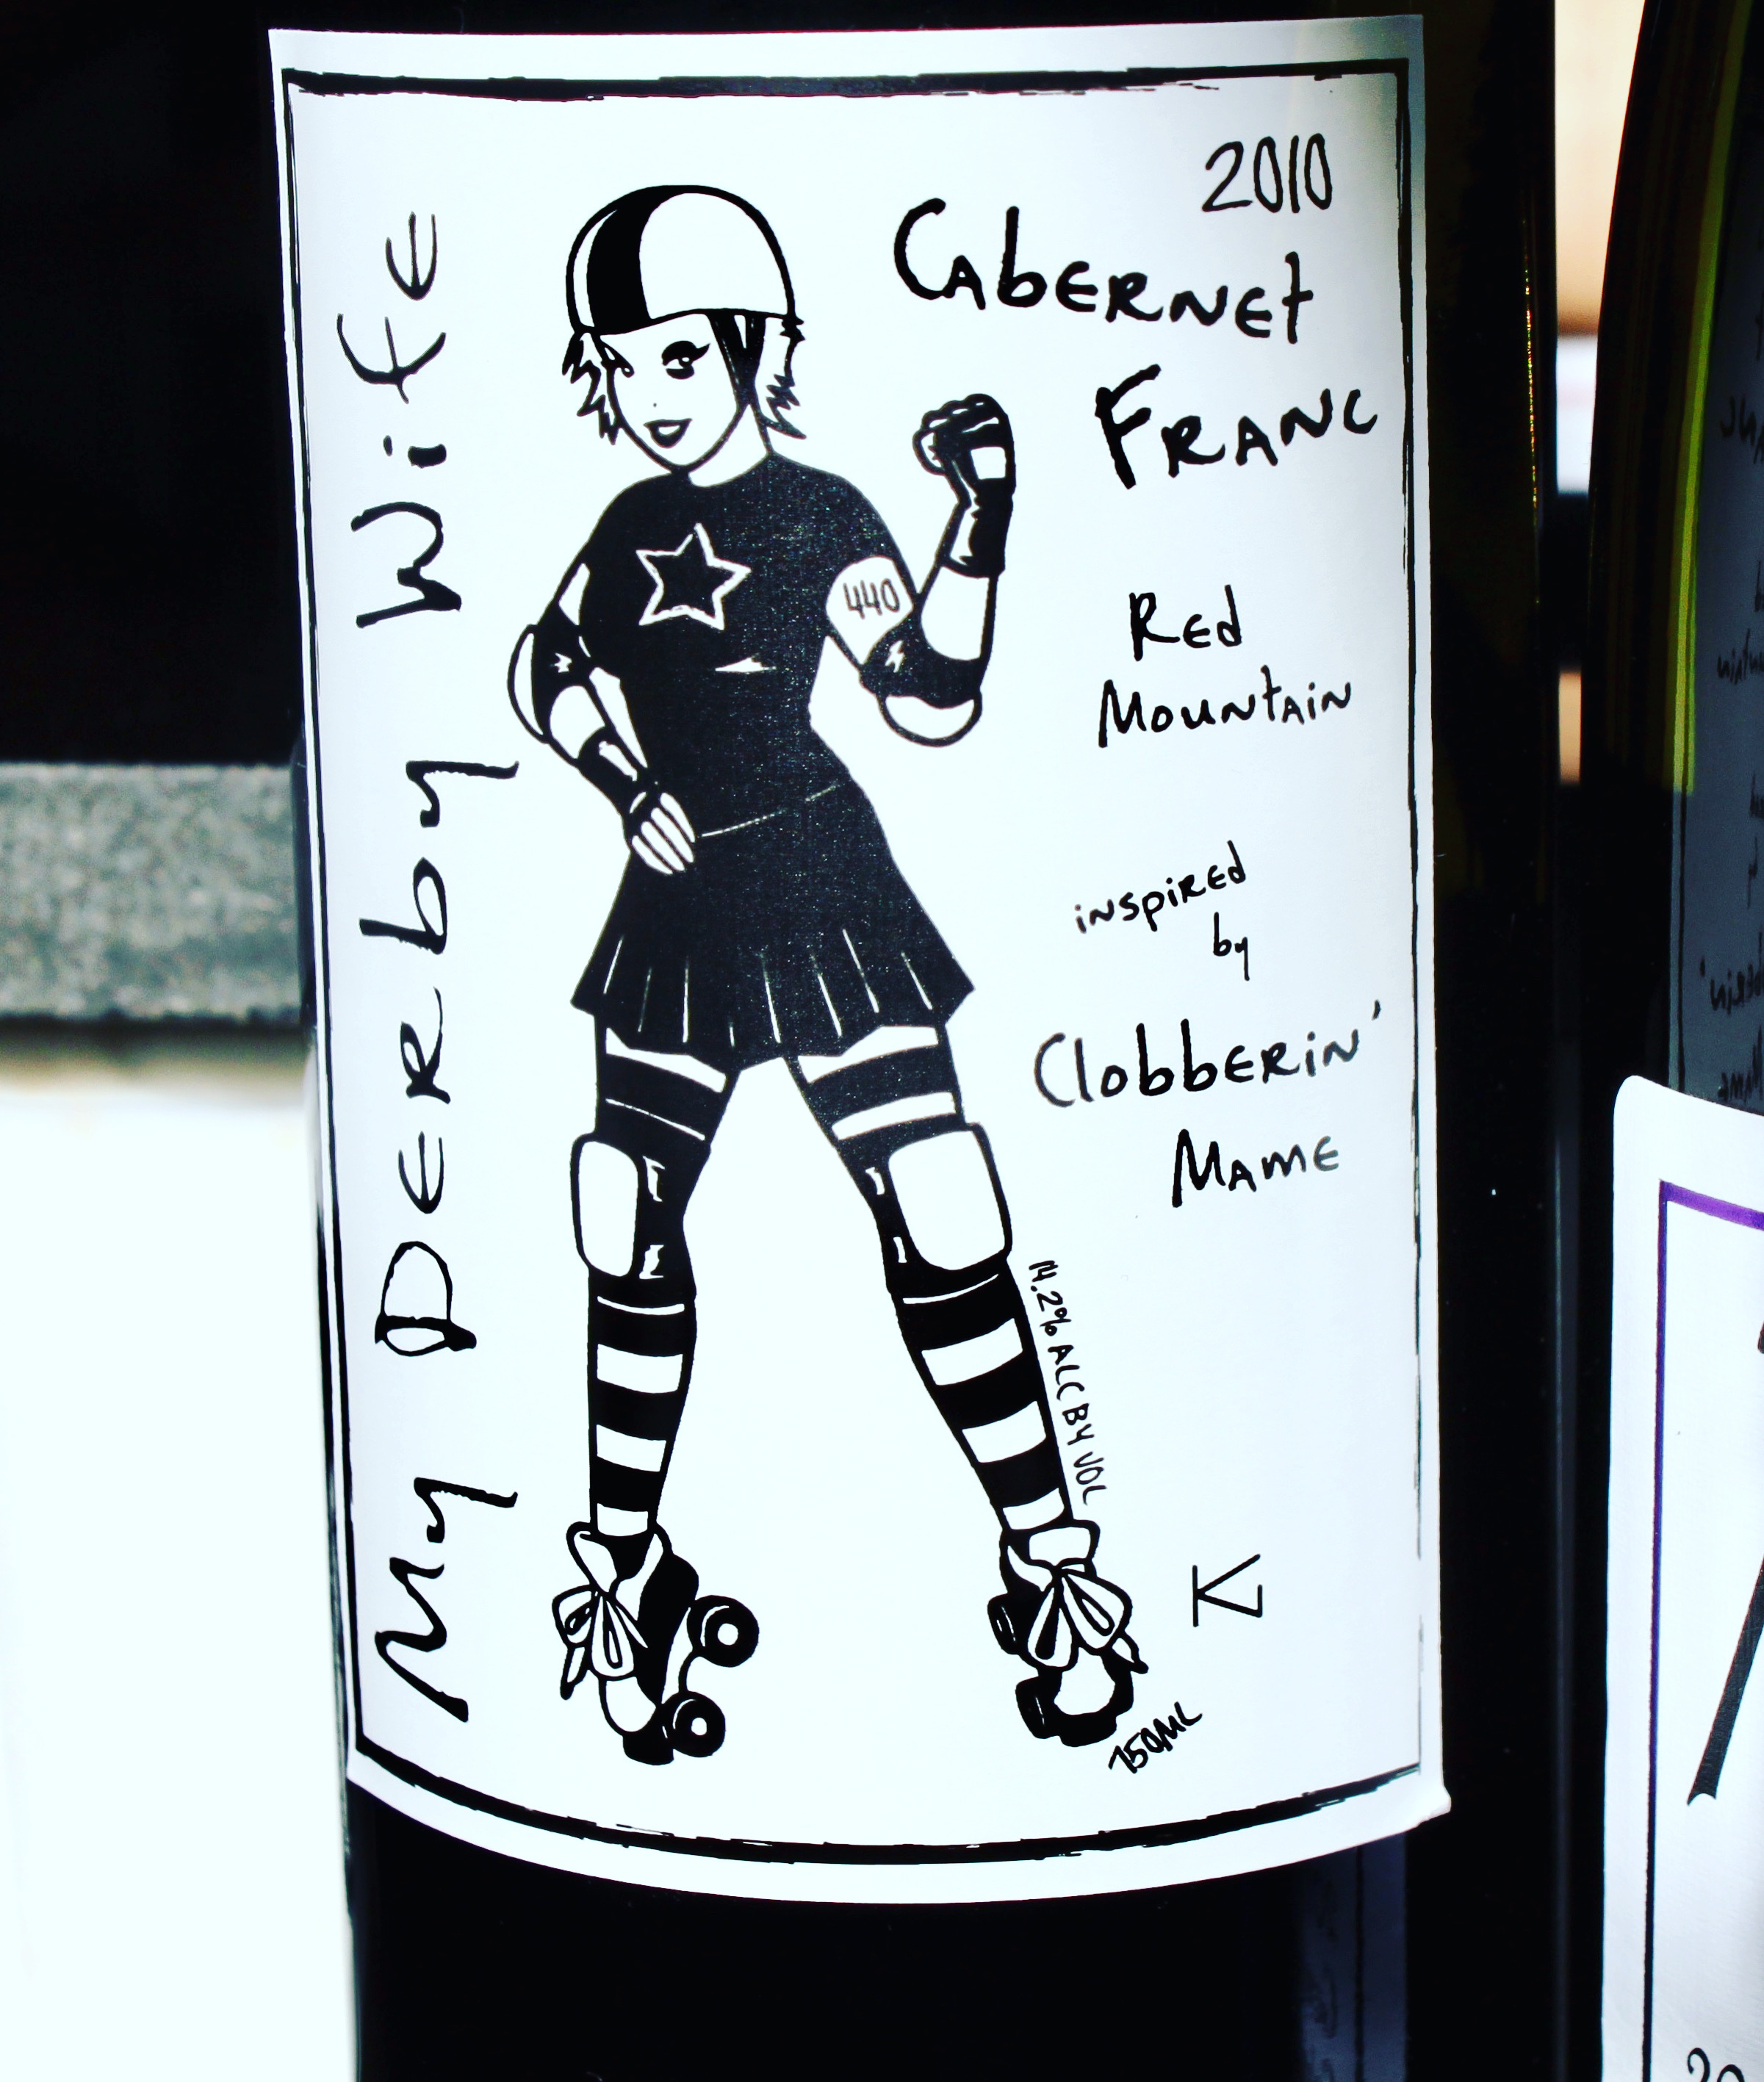 My Derby Wife
2010
Cabernet
Franc
440
Red
Mountain
inspired
by
Clobberin'
Mame
14.2% ALC BY VOL
750ML
20